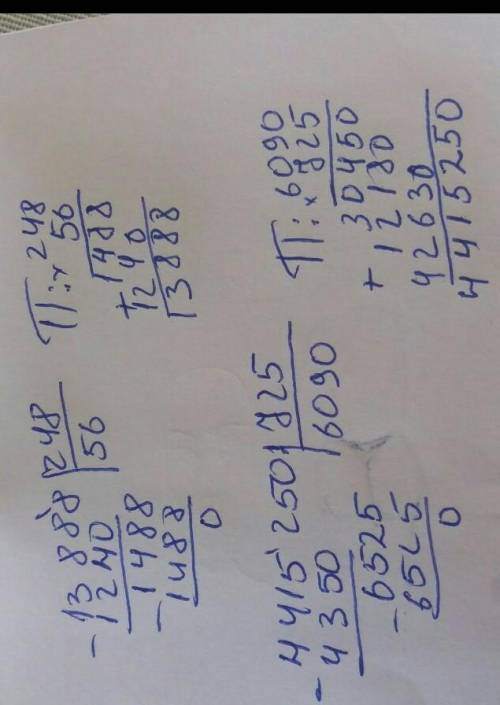 - 13888 | 248
1240 | 56
- 1488
1488
0
П: × 248
56
+ 1488
1240
13888
- 4415250 | 725
4350 | 6090
- 6525
6525
0
П: × 6090
725
+ 30450
12180
42630
4415250